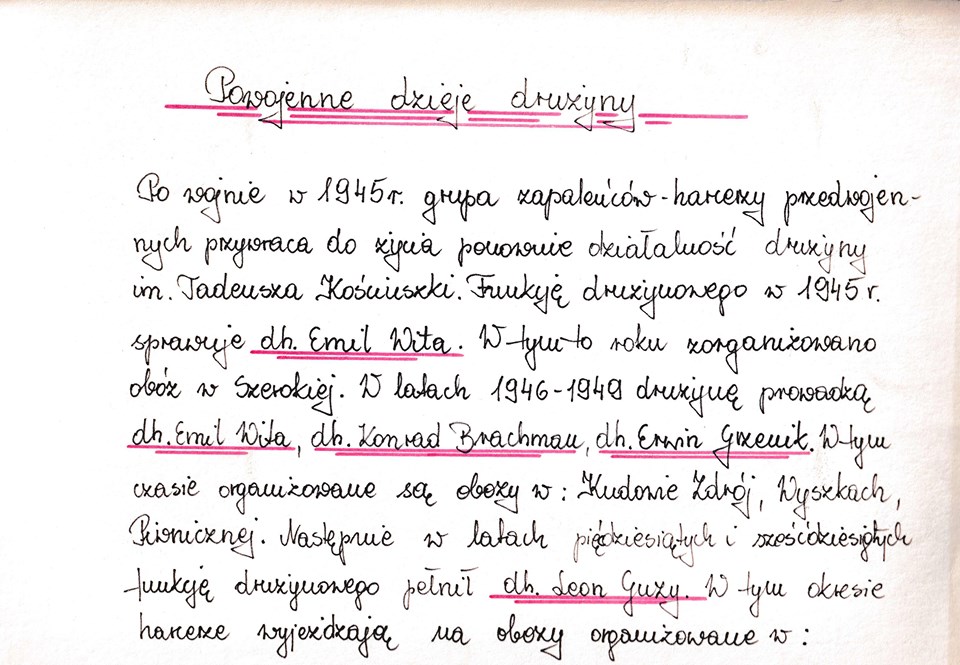 Powojenne dzieje drużyny
Po wojnie w 1945 r. grupa zapaleńców-harcerzy przedwojen-
nych przywraca do życia ponownie działalność drużyny
im. Tadeusza Kościuszki. Funkcję drużynowego w 1945 r.
sprawuje dh. Emil Wita. W tym to roku zorganizowano
obóz w Szerokiej. W latach 1946-1949 drużynę prowadzą
dh. Emil Wita, dh. Konrad Brachman, dh. Erwin Grzenik. W tym
czasie organizowane są obozy w: Kudowie Zdrój, Wyszkach,
Piwnicznej. Następnie w latach pięćdziesiątych i sześćdziesiątych
funkcję drużynowego pełnił dh. Leon Guzy. W tym okresie
harcerze wyjeżdzają na obozy organizowane w: